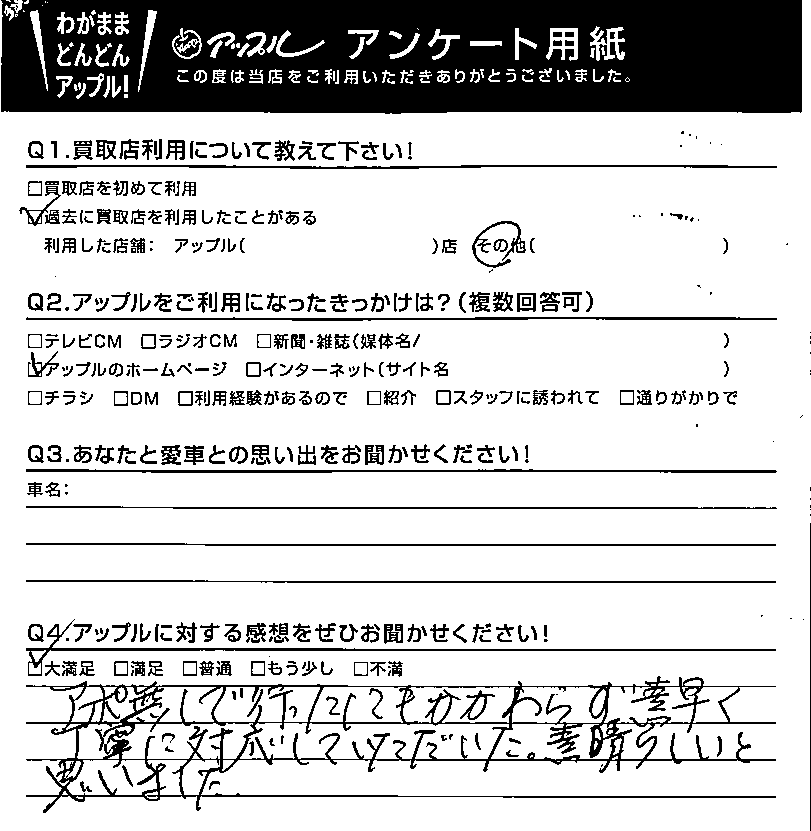 わがまま
どんどん
アップル!
アップル アンケート用紙
この度は当店をご利用いただきありがとうございました。
Q1.買取店利用について教えて下さい!
□買取店を初めて利用
☑過去に買取店を利用したことがある
利用した店舗: アップル( )店 その他( )
Q2.アップルをご利用になったきっかけは?(複数回答可)
□テレビCM □ラジオCM □新聞・雑誌(媒体名/ )
☑アップルのホームページ □インターネット(サイト名 )
□チラシ □DM □利用経験があるので □紹介 □スタッフに誘われて □通りがかりで
Q3.あなたと愛車との思い出をお聞かせください!
車名:
Q4.アップルに対する感想をぜひお聞かせください!
☑大満足 □満足 □普通 □もう少し □不満
アポ無しで行ったにもかかわらず素早く
丁寧に対応していただいた。素晴らしいと
思いました。